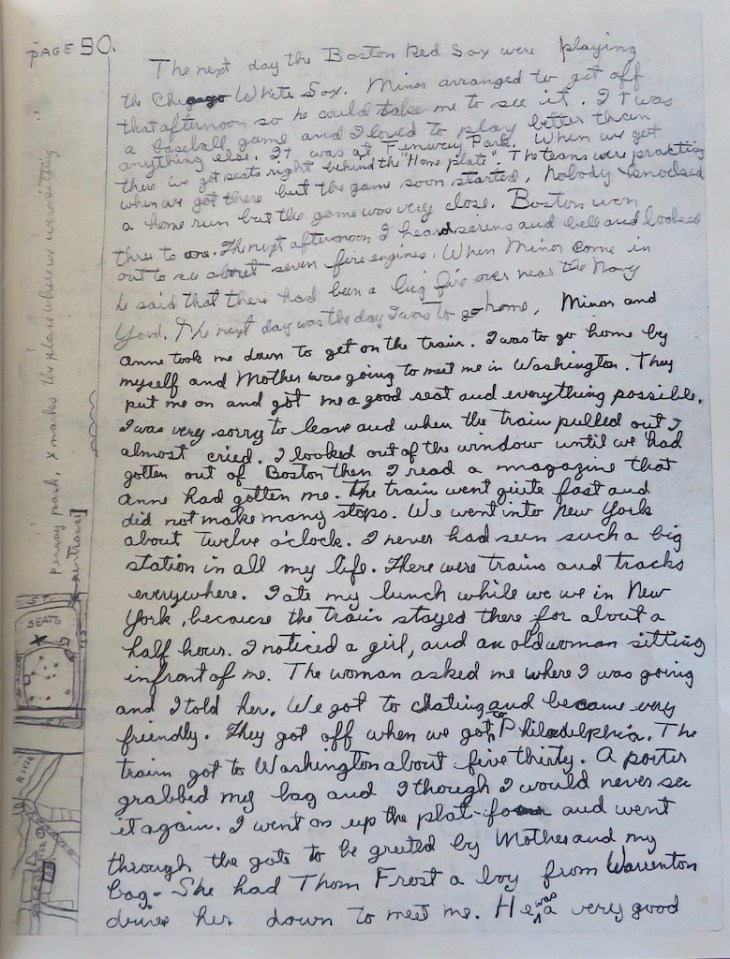 PAGE 50.
The next day the Boston Red Sox were playing
the Chicago White Sox. Minor arranged to get off
that afternoon so he could take me to see it. It was
a baseball game and I loved to play better than
anything else. It was at Fenway Park. When we got
there we got seats right behind the "Home plate". The teams were practing
when we got there but the game soon started. Nobody knocked
a home run but the game was very close. Boston won
three to one. The next afternoon I heard sirens and bells and looked
out to see about seven fire engines. When Minor come in
he said that there had been a big fire over near the Navy
Yard. The next day was the day I was to go home. Minor and
Anne took me down to get on the train. I was to go home by
myself and Mother was going to meet me in Washington. They
put me on and got me a good seat and everything possible.
I was very sorry to leave and when the train pulled out I
almost cried. I looked out of the window until we had
gotten out of Boston then I read a magazine that
Anne had gotten me. The train went quite fast and
did not make many stops. We went into New York
about twelve o'clock. I never had seen such a big
station in all my life. There were trains and tracks
everywhere. I ate my lunch while we we in New
York, because the train stayed there for about a
half hour. I noticed a girl, and an old woman sitting
infront of me. The woman asked me where I was going
and I told her. We got to chating and became very
friendly. They got off when we got to Philadelphia. The
train got to Washington about five thirty. A porter
grabbed my bag and I though I would never see
it again. I went on up the plat-form and went
through the gate to be greeted by Mother and my
bag. She had Thom Frost a boy from Warrenton
drive her down to meet me. He was a very good
Fenway park. X marks the place where we were sitting
entrance
SEATS
RIVER